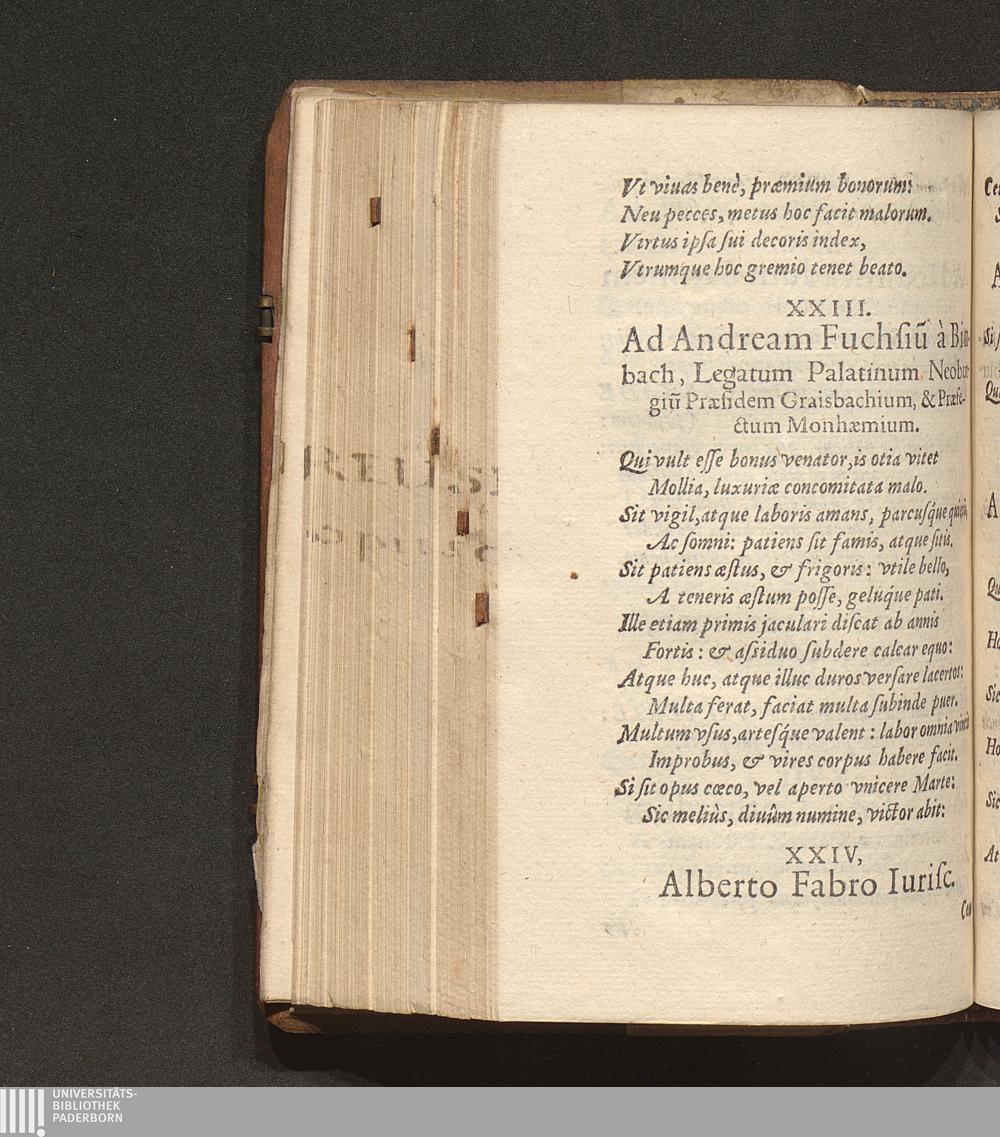 Vt viuas benè, præmium bonorum:
Neu pecces, metus hoc facit malorum.
Virtus ipſa ſui decoris index,
Vtrumque hoc gremio tenet beato.
XXIII.
Ad Andream Fuchſiū à Bin-
bach, Legatum Palatinum Neobur-
giū Præſidem Graisbachium, & Præfe-
ctum Monhæmium.
Qui vult eſſe bonus venator, is otia vitet
Mollia, luxuriæ concomitata malo.
Sit vigil, atque laboris amans, parcuſq́ue
Ac ſomni: patiens ſit famis, atque ſitis.
Sit patiens æſtus, & frigoris: vtile bello,
A teneris æſtum poſſe, geluq́ue pati.
Ille etiam primis jaculari diſcat ab annis
Fortis: & aſsiduo ſubdere calcar equo:
Atque huc, atque illuc duros verſare lacertos:
Multa ferat, faciat multa ſubinde puer.
Multum vſus, arteſq́ue valent: labor omnia vincit
Improbus, & vires corpus habere facit.
Si ſit opus cœco, vel aperto vnicere Marte:
Sic meliùs, diuûm numine, victor abit:
XXIV,
Alberto Fabro Iuriſc.
UNIVERSITÄTS-
BIBLIOTHEK
PADERBORN